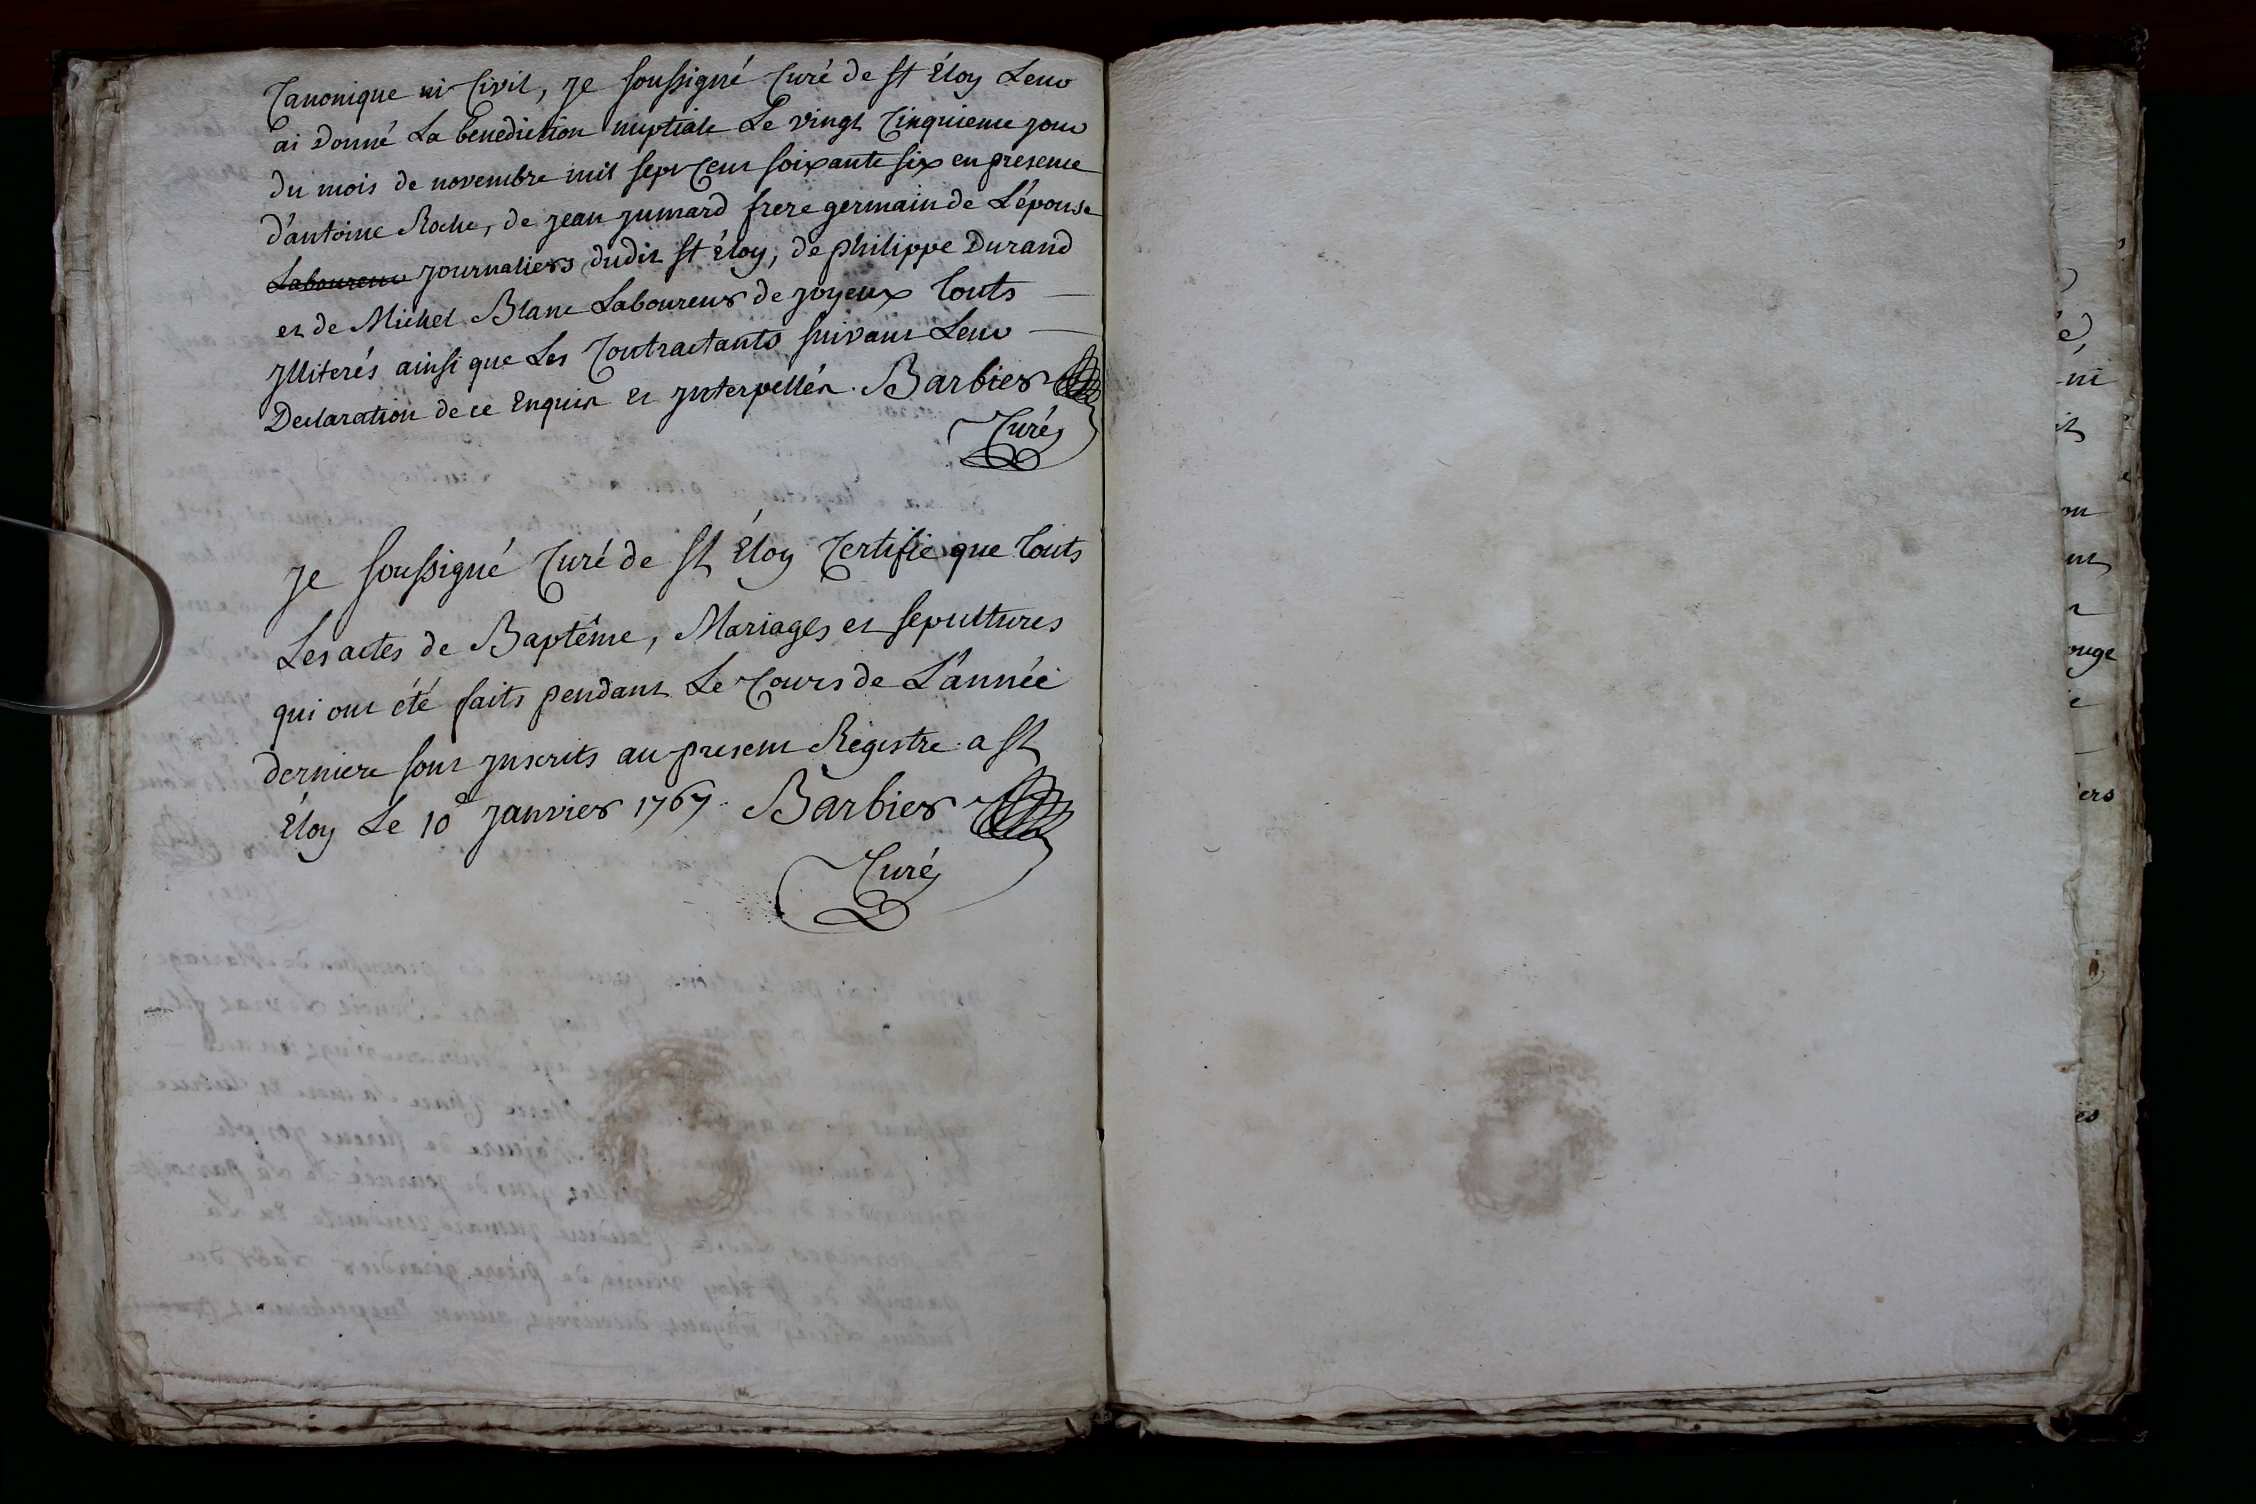 Canonique ni Civil, je soussigné Curé de st Éloy Leur
ai donné La benediction nuptiale Le vingt Cinquieme jour
du mois de novembre mil sept Cent soixante six en presence
d'antoine Roche, de jean jumard frere germain de L'épouse
Laboureur journaliers dudit st Éloy, de philippe Durand
et de Michel Blanc Laboureurs de joyeux touts
jlliterés ainsi que Les Contractants suivant Leur
Declaration de ce Enquis et jnterpellés. Barbier
Curé
je soussigné Curé de st Éloy Certifie que touts
Les actes de Baptême, Mariages et sepultures
qui ont été faits pendant Le Cours de L'année
derniere sont jnscrits au present Régistre a st
Éloy Le 10e janvier 1767. Barbier
Curé
é,
ni
it
on
ouge
ers
es